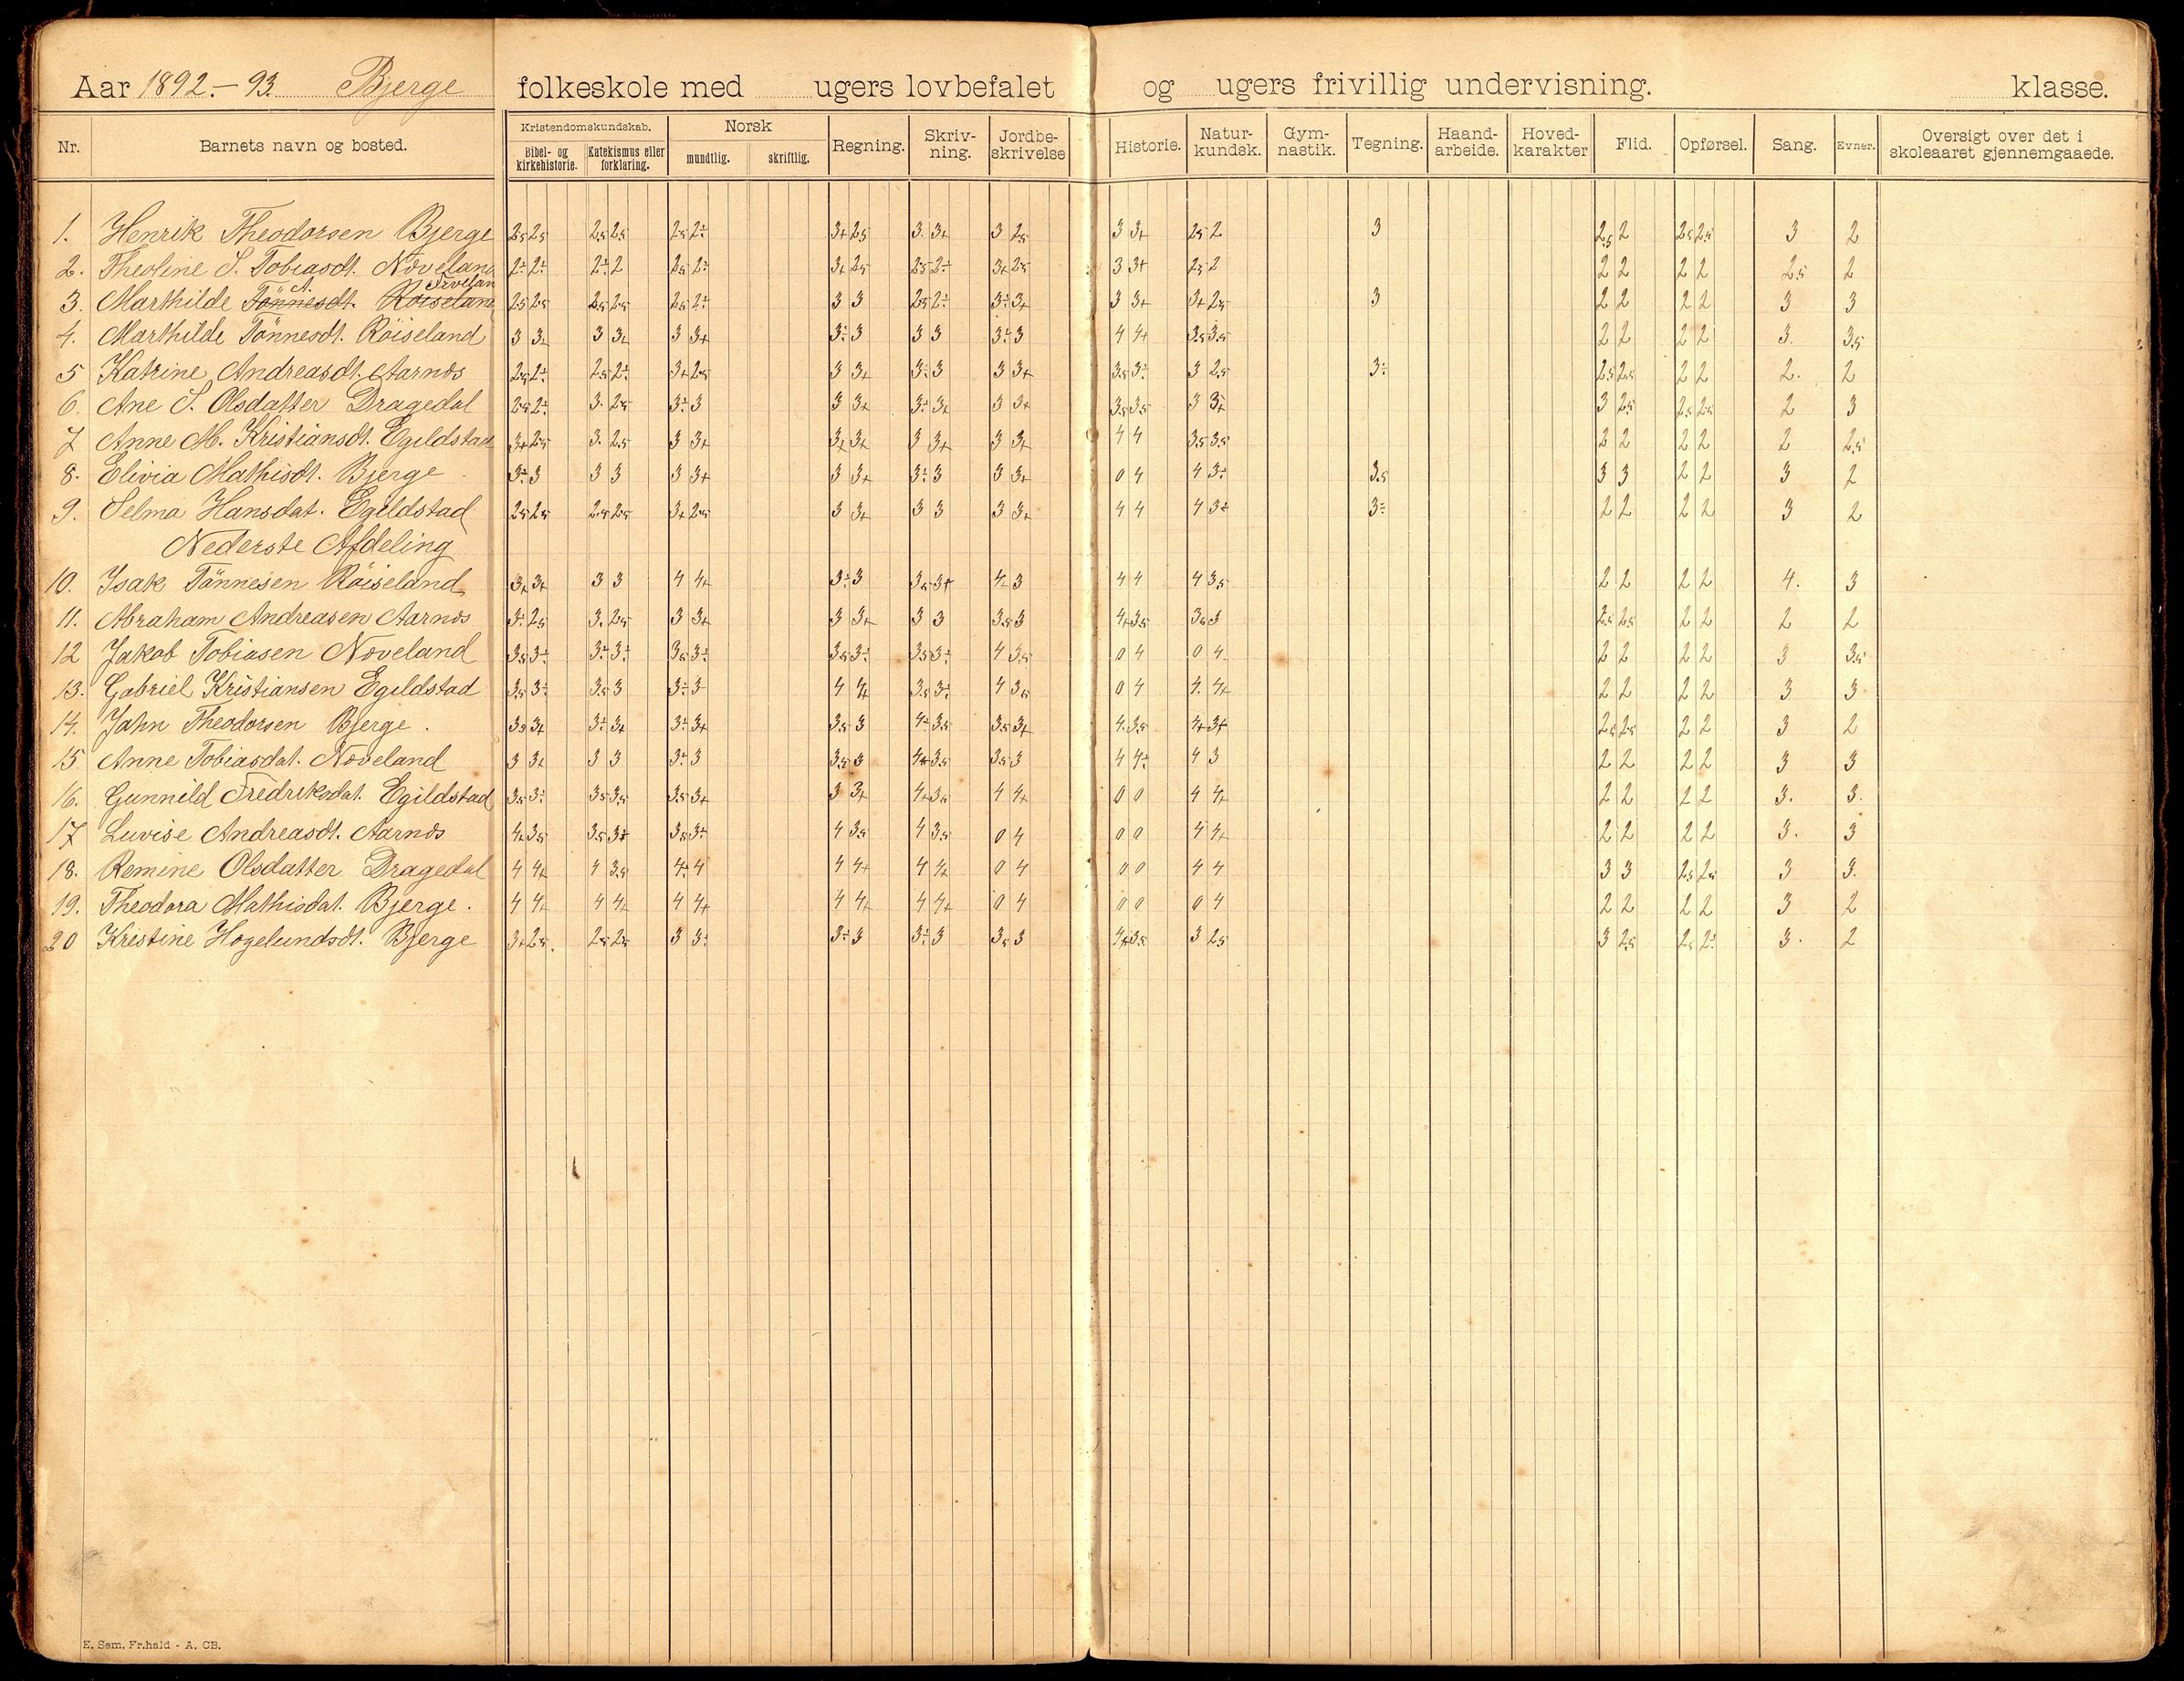 Aar 1892.-93. Bjerge folkeskole med ugers lovbefalet og ugers frivillig undervisning. klasse.
Nr. Barnets navn og bosted. Kristendomskundskab. Bibel- og kirkehistorie. Katekismus eller forklaring. Norsk mundtlig. skriftlig. Regning. Skriv-ning. Jordbe-skrivelse Historie. Natur-kundsk. Gym-nastik. Tegning. Haand-arbeide. Hoved-karakter Flid. Opførsel. Sang. Evner. Oversigt over det i skoleaaret gjennemgaaede.
1. Henrik Theodorsen Bjerge 2.5 2.5 2.5 2.5 2.5 2÷ 3+ 2.5 3. 3+ 3 2.5 3 3+ 2.5 2 3 2.5 2 2.5 2.5 3 2
2. Theoline S. Tobiasdt. Noveland 2÷ 2÷ 2÷ 2 2.5 2÷ 3+ 2.5 2.5 2÷ 3+ 2.5 3 3+ 2.5 2 2 2 2 2 2.5 2
3. Marthilde A. Tönnesdt. Röiseland 2.5 2.5 2.5 2.5 2.5 2÷ 3 3 2.5 2÷ 3÷ 3+ 3 3+ 3+ 2.5 3 2 2 2 2 3 3
4. Marthilde Tönnesdt. Röiseland 3 3+ 3 3+ 3 3+ 3÷ 3 3 3 3÷ 3 4 4+ 3.5 3.5 2 2 2 2 3. 3.5
5 Katrine Andreasdt. Aarnos 2.5 2÷ 2.5 2÷ 3+ 2.5 3 3+ 3÷ 3 3 3+ 3.5 3÷ 3 2.5 3÷ 2.5 2.5 2 2 2. 2
6. Ane S. Olsdatter Dragedal 2.5 2÷ 3. 2.5 3÷ 3 3 3+ 3÷ 3+ 3 3+ 3.5 3.5 3 3+ 3 2.5 2.5 2.5 2 3
7 Anne M. Kristiansdt. Egildstad 3+ 2.5 3. 2.5 3 3+ 3+ 3+ 3 3+ 3 3+ 4 4 3.5 3.5 2 2 2 2 2 2.5
8. Elivia Mathisdt. Bjerge 3÷ 3 3 3 3 3+ 3 3+ 3÷ 3 3 3+ 0 4 4 3÷ 3.5 3 3 2 2 3 2
9. Selma Hansdat. Egildstad 2.5 2.5 2.5 2.5 3+ 2.5 3 3+ 3 3 3 3+ 4 4 4 3÷ 3÷ 2 2 2 2 3 2
Nederste Afdeling
10. Isak Tönnesen Röiseland 3+ 3+ 3 3 4 4+ 3÷ 3 3.5 3+ 4+ 3 4 4 4 3.5 2 2 2 2 4. 3
11. Abraham Andreasen Aarnos 3÷ 2.5 3. 2.5 3 3+ 3 3+ 3 3 3.5 3 4+ 3.5 3.5 3 2.5 2.5 2 2 2 2
12 Jakob Tobiasen Noveland 3.5 3÷ 3÷ 3÷ 3.5 3÷ 3.5 3÷ 3.5 3÷ 4 3.5 0 4 0 4 2 2 2 2 3 3.5
13. Gabriel Kristiansen Egildstad 3.5 3÷ 3.5 3 3÷ 3 4 4+ 3.5 3÷ 4 3.5 0 4 4. 4+ 2 2 2 2 3 3
14. Jahn Theodorsen Bjerge. 3.5 3+ 3÷ 3+ 3÷ 3+ 3.5 3 4÷ 3.5 3.5 3+ 4. 3.5 4+ 3+ 2.5 2.5 2 2 3 2
15. Anne Tobiasdat. Noveland 3 3+ 3 3 3÷ 3 3.5 3 4+ 3.5 3.5 3 4 4÷ 4 3 2 2 2 2 3 3
16. Gunnild Fredriksdat. Egildstad 3.5 3÷ 3.5 3.5 3.5 3+ 3 3+ 4+ 3.5 4 4+ 0 0 4 4+ 2 2 2 2 3. 3.
17 Luvise Andreasdt. Aarnos 4+ 3.5 3.5 3+ 3.5 3÷ 4 3.5 4 3.5 0 4 0 0 4 4+ 2 2 2 2 3. 3
18. Remine Olsdatter Dragedal 4 4+ 4 3.5 4÷ 4 4 4+ 4 4+ 0 4 0 0 4 4 3 3 2.5 2.5 3 3.
19. Theodora Mathisdat. Bjerge. 4 4+ 4 4+ 4 4+ 4 4+ 4 4+ 0 4 0 0 0 4 2 2 2 2 3 2
20 Kristine Hogelundsdt. Bjerge 3+ 2.5. 2.5 2.5 3 3÷ 3÷ 3 3÷ 3 3.5 3 4+ 3.5 3 2.5 3 2.5 2.5 2÷ 3. 2
E. Sem, Fr.hald - A. CB.